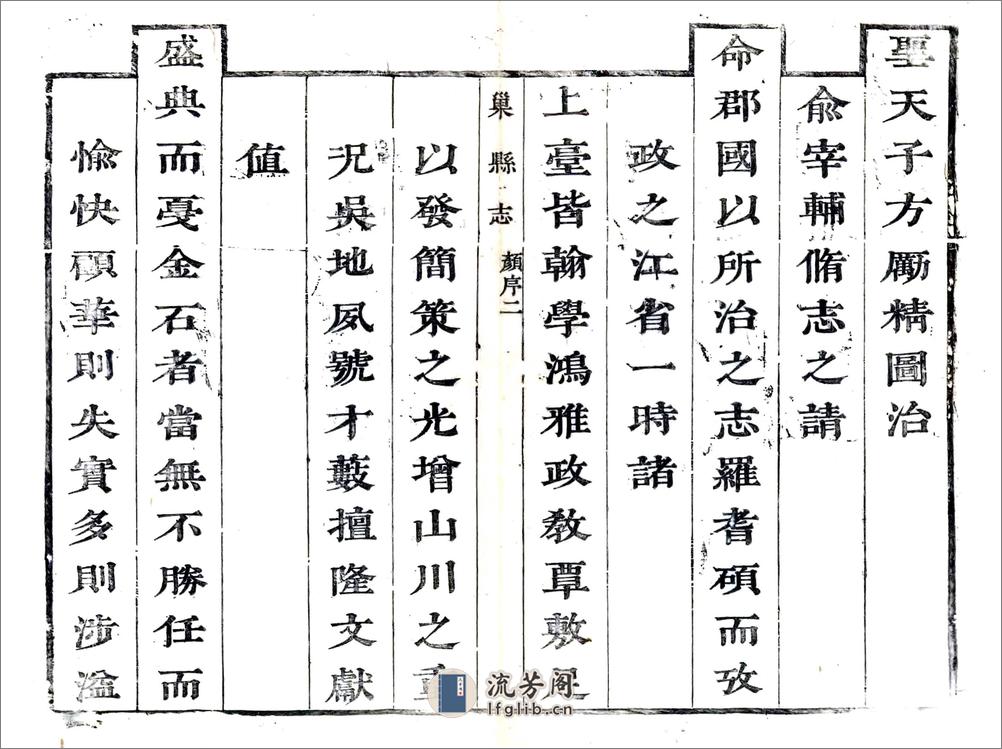 聖天子方厲精圖治
俞宰輔脩志之請
命郡國以所治之志羅耆碩而攷
政之江省一時諸
上臺皆翰學鴻雅政敎覃敷足
巢縣志 顏序二
以發簡策之光增山川之重
况吳地夙號才藪擅隆文獻
值
盛典而戞金石者當無不勝任而
愉快顧華則失實多則涉溢
流芳阁
lfglib.cn